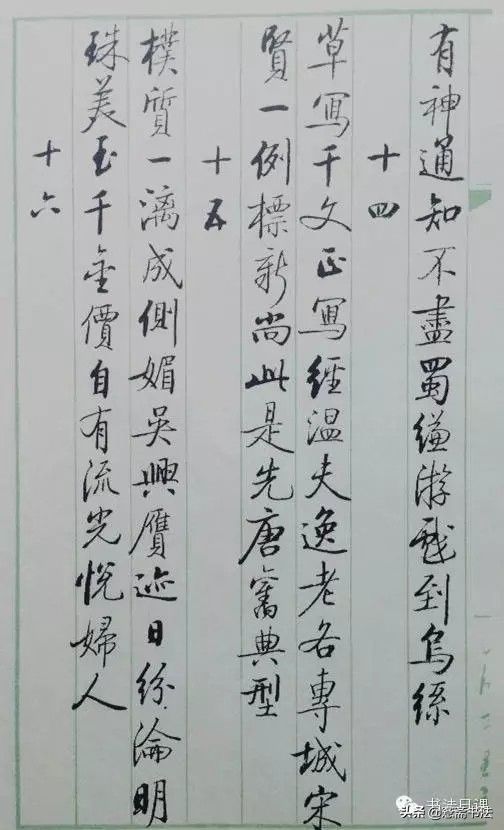 有神通知不盡蜀縑游戲到烏絲
十四
草寫千文正寫經溫夫逸老各專城宋
賢一例標新尚此是先唐舊典型
十五
樸質一漓成側媚吳興贋迹日紛淪明
珠美玉千金價自有流光悅婦人
十六
书法日课
头条@忍斋书法